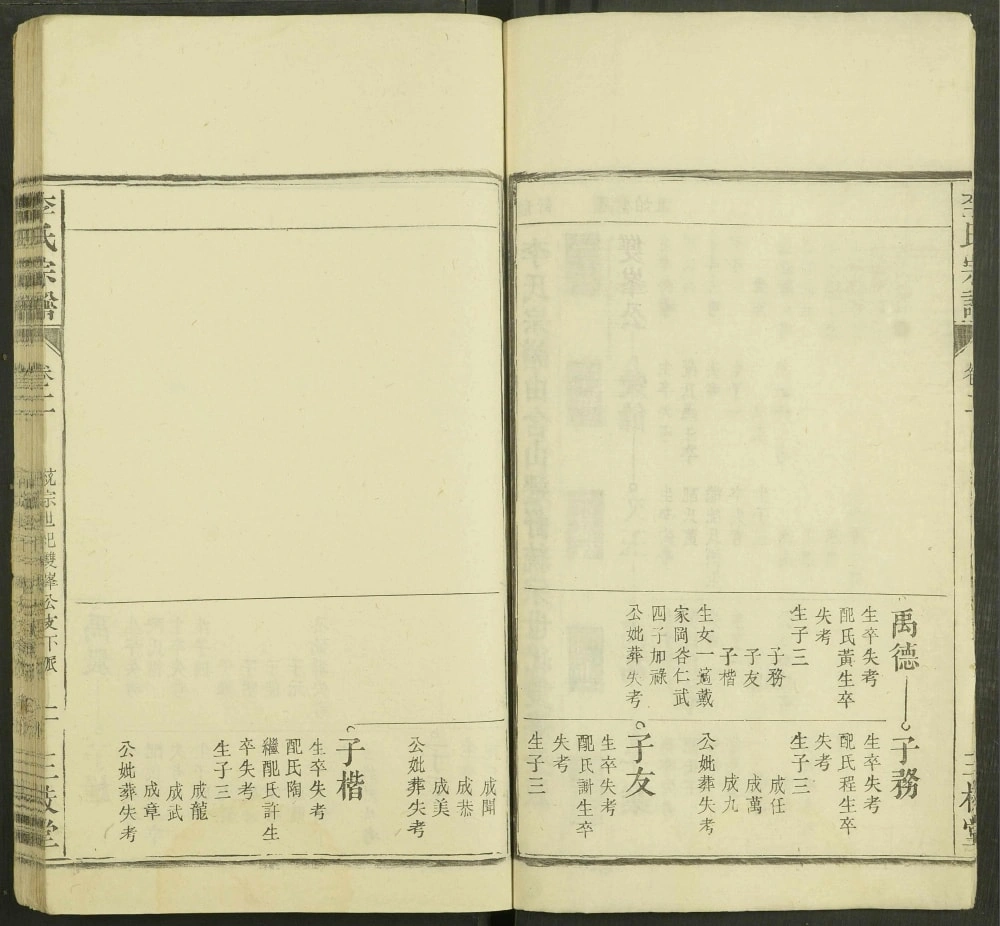 李氏宗譜
卷二
禹德
生卒失考
配氏黃生卒
失考
生子三
子務
子友
子楷
生女一適戴
家岡咎仁武
四子加祿
公妣葬失考
子務
生卒失考
配氏程生卒
失考
生子三
成任
成萬
成九
公妣葬失考
子友
生卒失考
配氏謝生卒
失考
生子三
成聞
成恭
成美
公妣葬失考
子楷
生卒失考
配氏陶
繼配氏許生
卒失考
生子三
成龍
成武
成章
公妣葬失考
李氏宗譜
卷二
統宗世紀雙峯公支下派